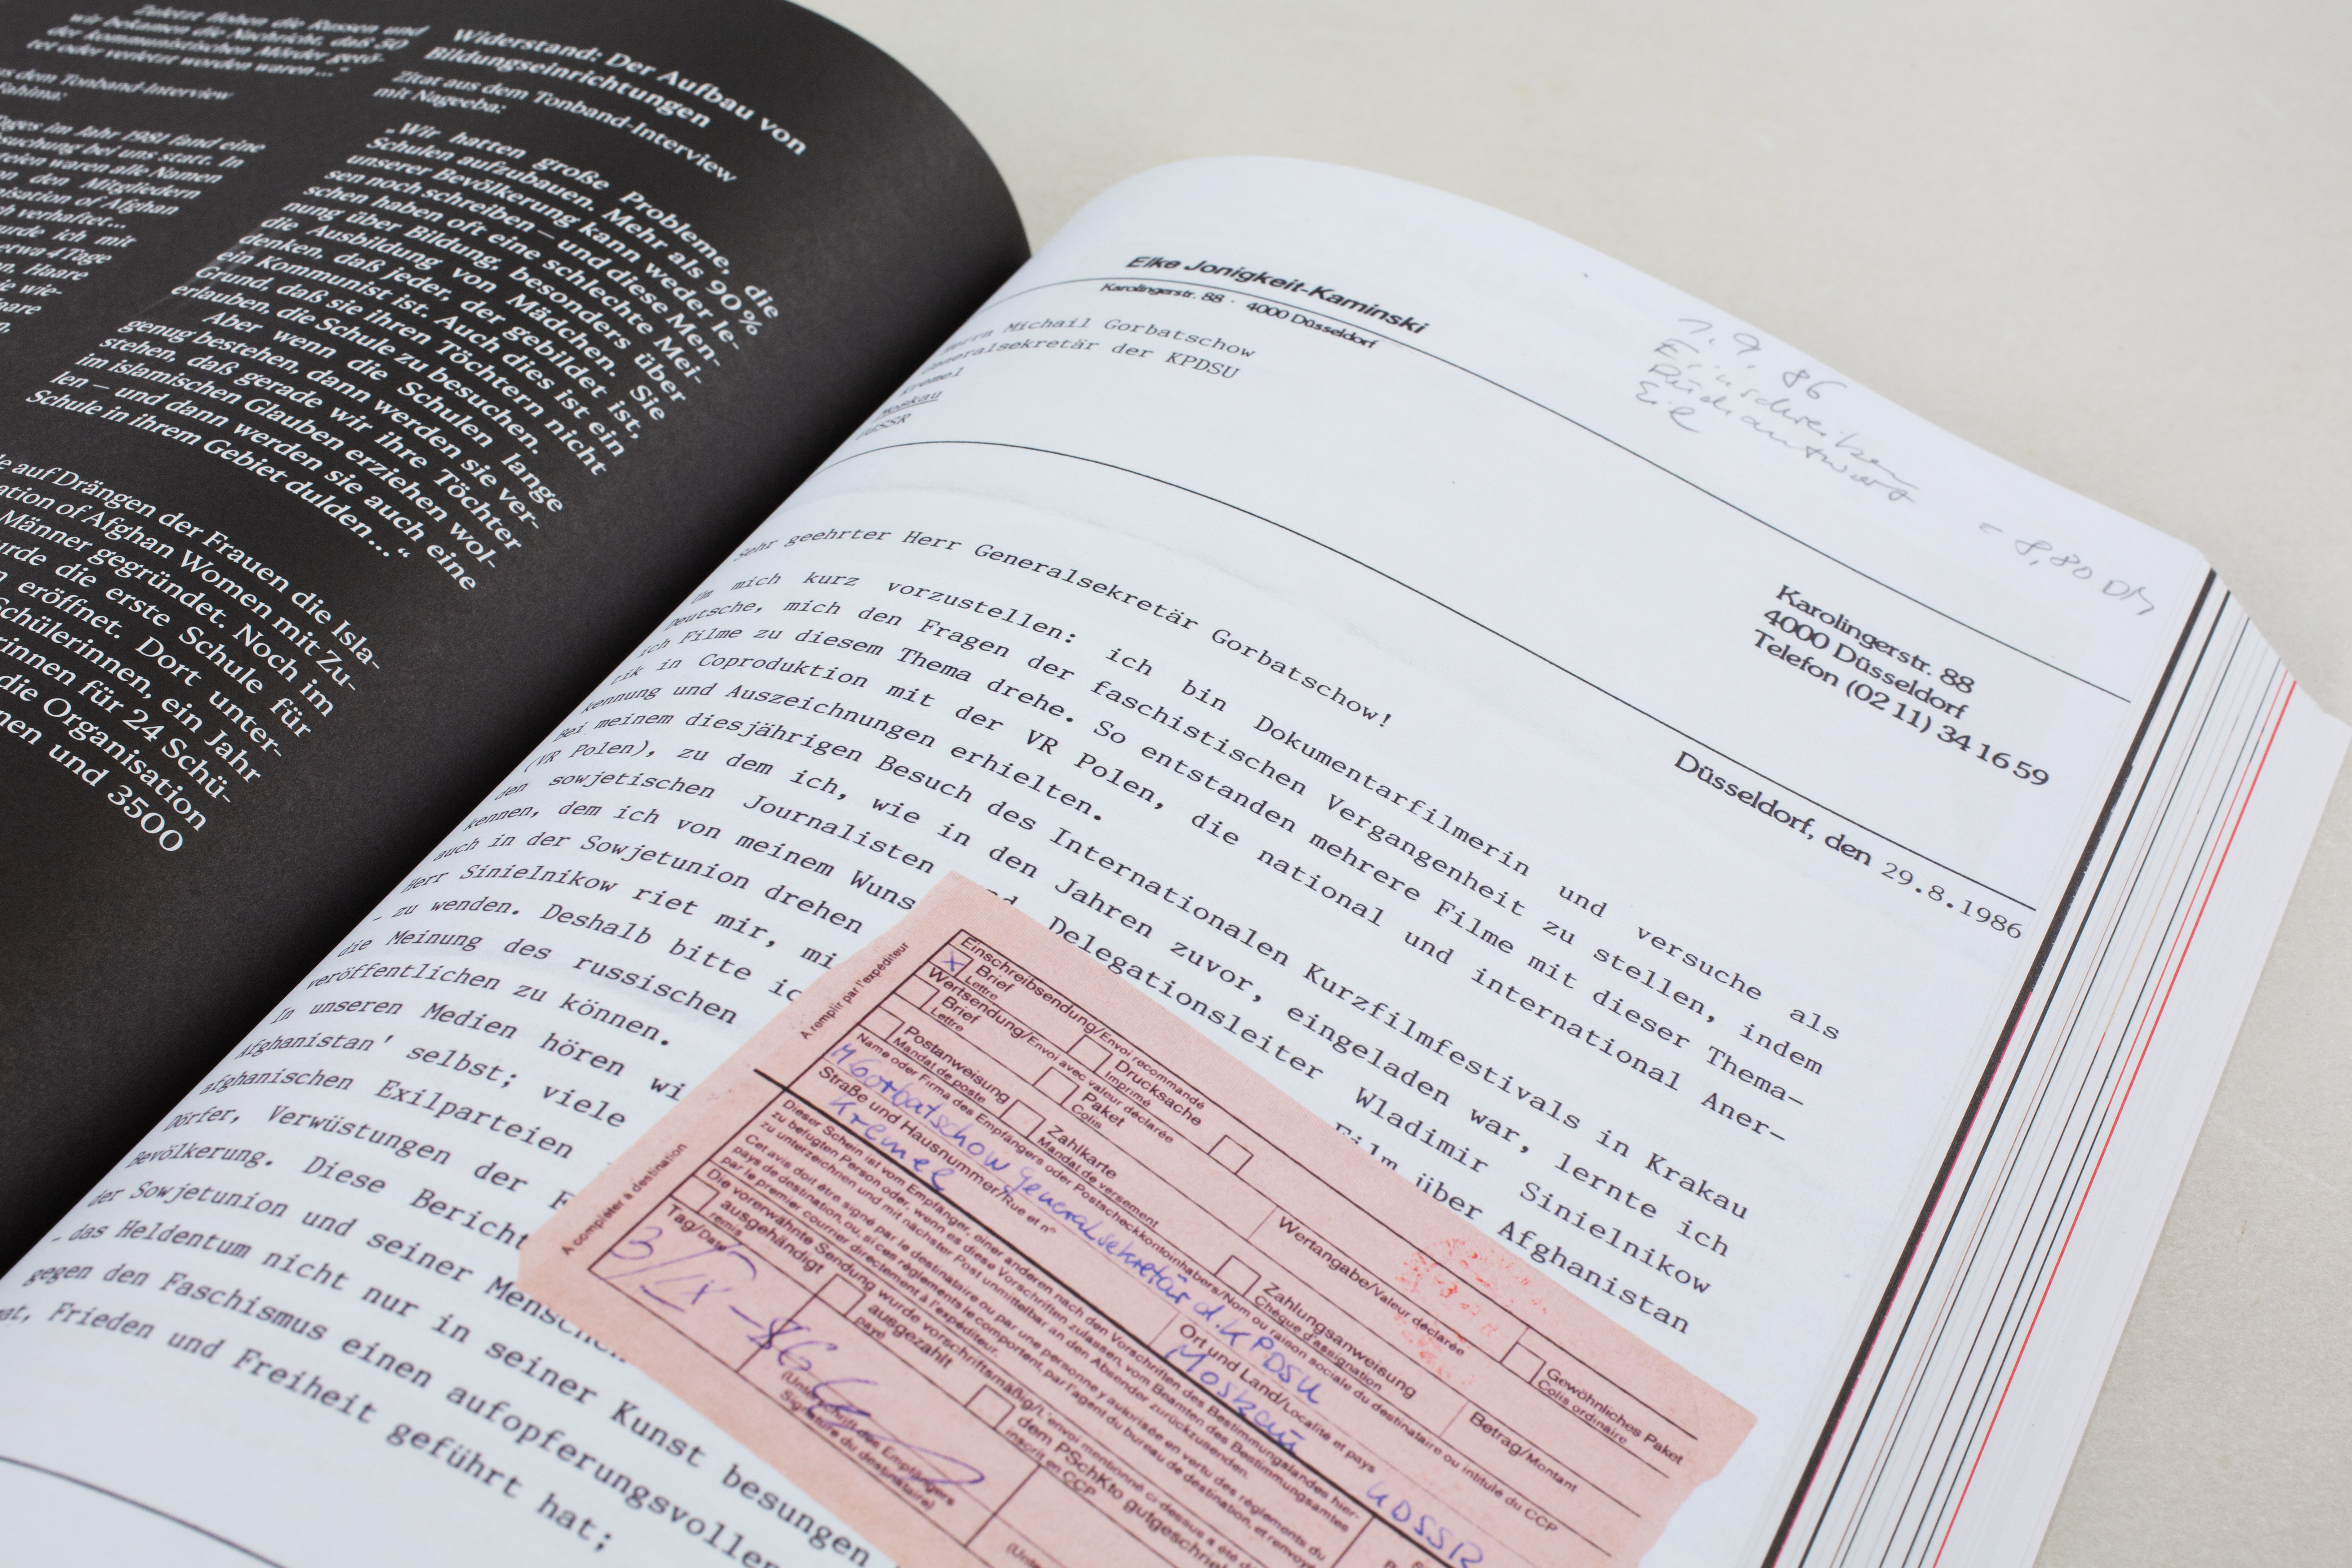 Zuletzt flohen die Russen und
wir bekamen die Nachricht, daß 50
der kommunistischen Mörder getö-
tet oder verletzt worden waren..."
dem Tonband-Interview
Fahima:
Tages im Jahr 1981 fand eine
bei uns statt. In
waren alle Namen
den Mitgliedern
of Afghan
verhaftet...
ich mit
etwa 4 Tage
Haare
wie-
Widerstand: Der Aufbau von
Bildungseinrichtungen
Zitat aus dem Tonband-Interview
mit Nageeba:
„Wir hatten große Probleme, die
Schulen aufzubauen. Mehr als 90%
unserer Bevölkerung kann weder le-
sen noch schreiben – und diese Men-
schen haben oft eine schlechte Mei-
nung über Bildung, besonders über
die Ausbildung von Mädchen. Sie
denken, daß jeder, der gebildet ist,
ein Kommunist ist. Auch dies ist ein
Grund, daß sie ihren Töchtern nicht
erlauben, die Schule zu besuchen.
Aber wenn die Schulen lange
genug bestehen, dann werden sie ver-
stehen, daß gerade wir ihre Töchter
im islamischen Glauben erziehen wol-
len – und dann werden sie auch eine
Schule in ihrem Gebiet dulden..."
auf Drängen der Frauen die Isla-
of Afghan Women mit Zu-
Männer gegründet. Noch im
die erste Schule für
eröffnet. Dort unter-
ein Jahr
für 24 Schü-
die Organisation
und 3500
Elke Jonigkeit-Kaminski
Karolingerstr. 88 · 4000 Düsseldorf
Michail Gorbatschow
Generalsekretär der KPDSU
Kreml
Moskau
UdSSR
1.9.86
Einschreiben
Rückantwort
Eil
= 8,80 DM
Karolingerstr. 88
4000 Düsseldorf
Telefon (02 11) 34 16 59
Düsseldorf, den 29.8.1986
Sehr geehrter Herr Generalsekretär Gorbatschow!
Um mich kurz vorzustellen: ich bin Dokumentarfilmerin und versuche als
Deutsche, mich den Fragen der faschistischen Vergangenheit zu stellen, indem
ich Filme zu diesem Thema drehe. So entstanden mehrere Filme mit dieser Thema-
tik in Coproduktion mit der VR Polen, die national und international Aner-
kennung und Auszeichnungen erhielten.
Bei meinem diesjährigen Besuch des Internationalen Kurzfilmfestivals in Krakau
(VR Polen), zu dem ich, wie in den Jahren zuvor, eingeladen war, lernte ich
den sowjetischen Journalisten Delegationsleiter Wladimir Sinielnikow
kennen, dem ich von meinem Film über Afghanistan
auch in der Sowjetunion drehen
Herr Sinielnikow riet mir,
- zu wenden. Deshalb bitte
die Meinung des russischen
veröffentlichen zu können.
In unseren Medien hören
Afghanistan' selbst; viele
afghanischen Exilparteien
Dörfer, Verwüstungen der
Bevölkerung. Diese
der Sowjetunion und seiner
- das Heldentum nicht nur in seiner Kunst besungen
gegen den Faschismus einen aufopferungsvollen
Frieden und Freiheit geführt hat;
A remplir par l'expéditeur
Einschreibsendung/Envoi recommandé
x Brief
Lettre
Drucksache
Imprimé
Wertsendung/Envoi avec valeur déclarée
Brief
Lettre
Paket
Colis
Wertangabe/Valeur déclarée
Gewöhnliches Paket
Colis ordinaire
Postanweisung
Mandat de poste
Zahlkarte
Mandat de versement
Zahlungsanweisung
Chèque d'assignation
Betrag/Montant
Name oder Firma des Empfängers oder Postscheckkontoinhabers/Nom ou raison sociale du destinataire ou intitulé du CCP
M Gorbatschow Generalsekretär d. KPDSU
Straße und Hausnummer/Rue et n°
Kreml
Ort und Land/Localité et pays
Moskau UDSSR
A compléter à destination
Dieser Schein ist vom Empfänger oder, wenn es die Vorschriften des Bestimmungslandes hier-
Cet avis doit être signé par le destinataire ou par une personne y autorisée en vertu des règlements du
pays de destination, ou, si ces règlements le comportent, par l'agent du bureau de destination, et renvoyé
par le premier courrier directement à l'expéditeur.
Die vorerwähnte Sendung wurde vorschriftsmäßig/L'envoi mentionné ci-dessus a été
ausgehändigt
remis
ausgezahlt
payé
dem PSchKto gutgeschrieben
inscrit en CCP
Tag/Date
3/IX-86
(Unterschrift des Empfängers
Signature du destinataire)